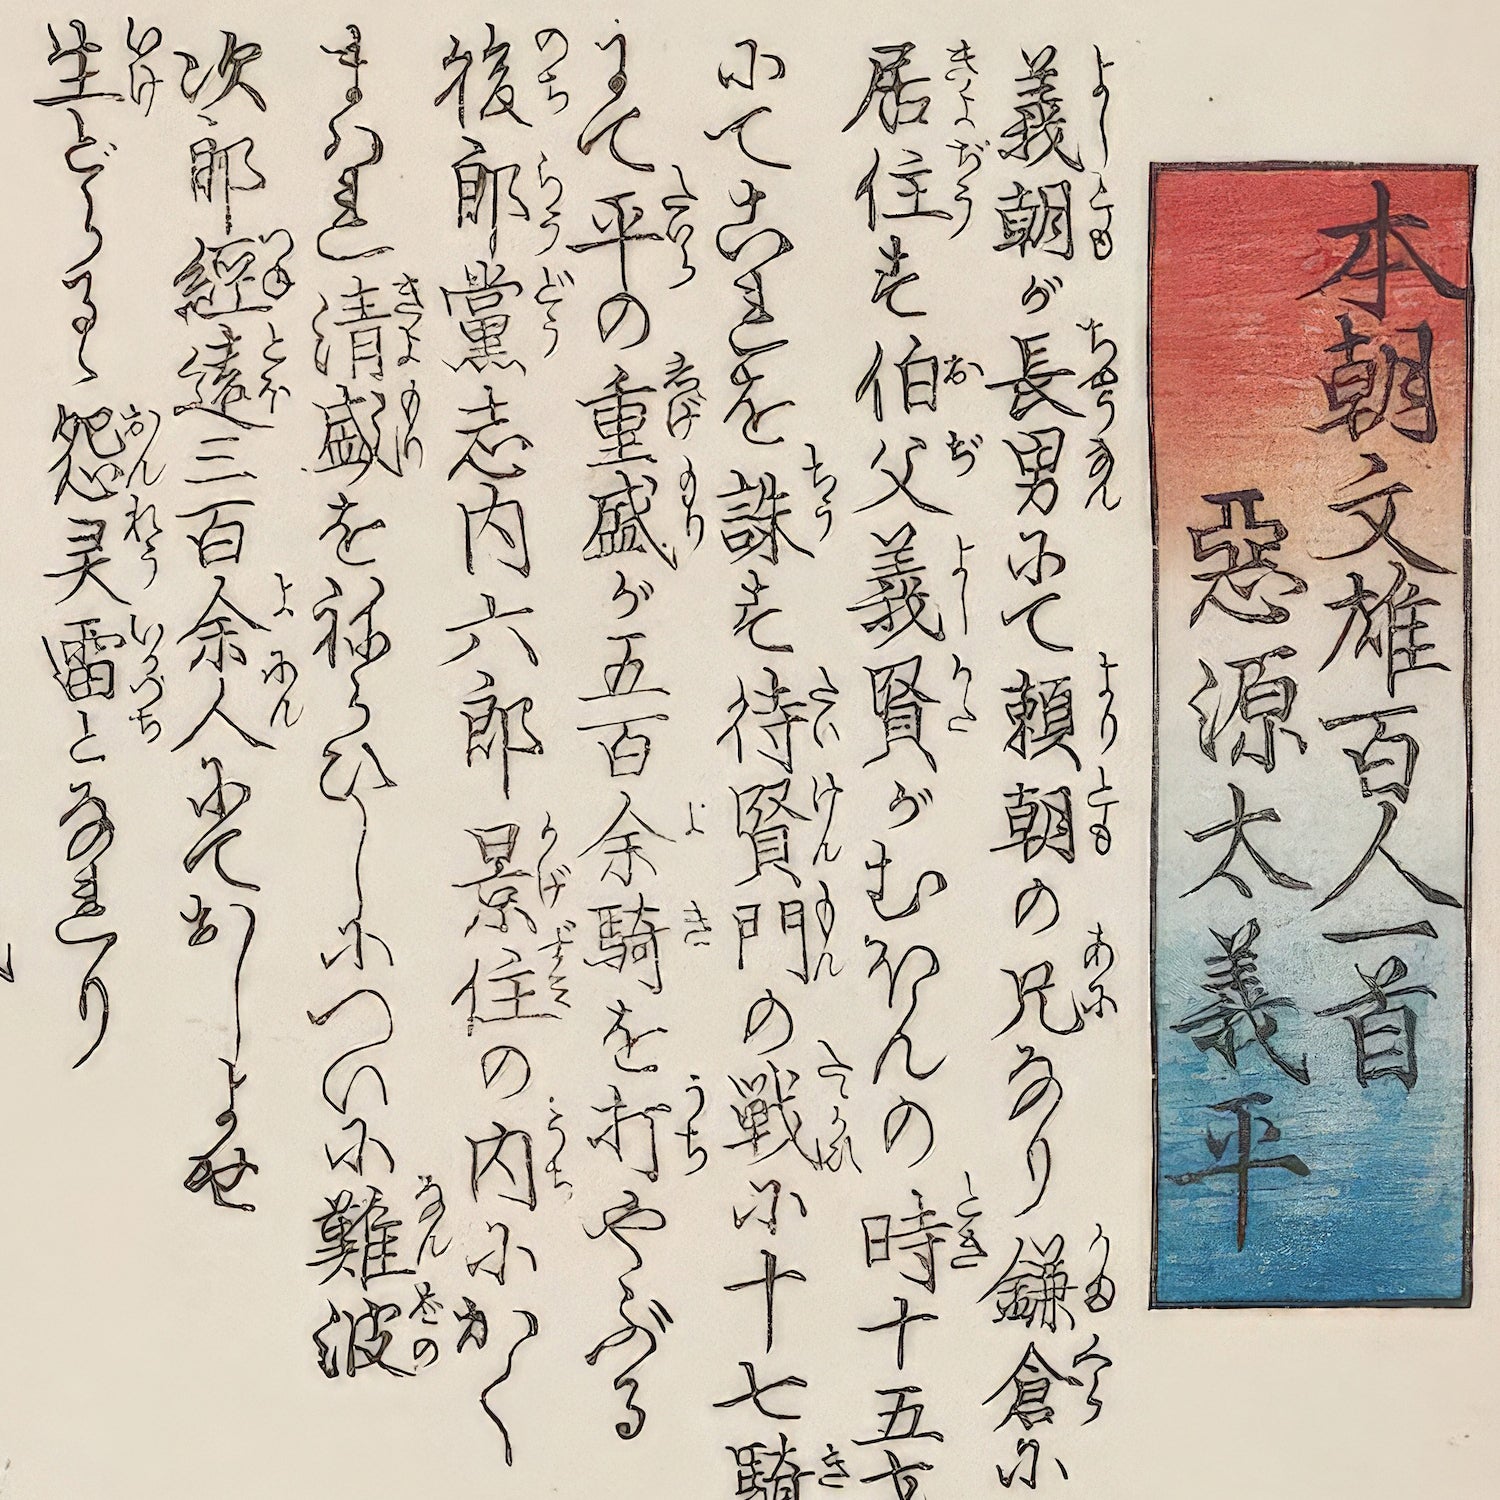 本朝文雄百人一首
惡源太義平
義朝が長男にて頼朝の兄なり鎌倉に
居住す伯父義賢がむほんの時十五才
にてこれを誅す待賢門の戦に十七騎
にて平の重盛が五百余騎を打やぶる
後郎黨志内六郎景住の内にかく
まはれ清盛をねらひしについに難波
次郎經遠三百余人にておしよせ
生どらるゝ怨灵雷となれり